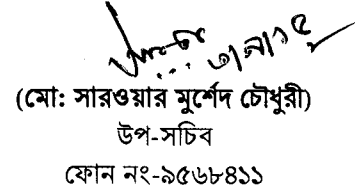 (মো: সারওয়ার মুর্শেদ চৌধুরী)
উপ-সচিব
ফোন নং-৯৫৬৮৪১১